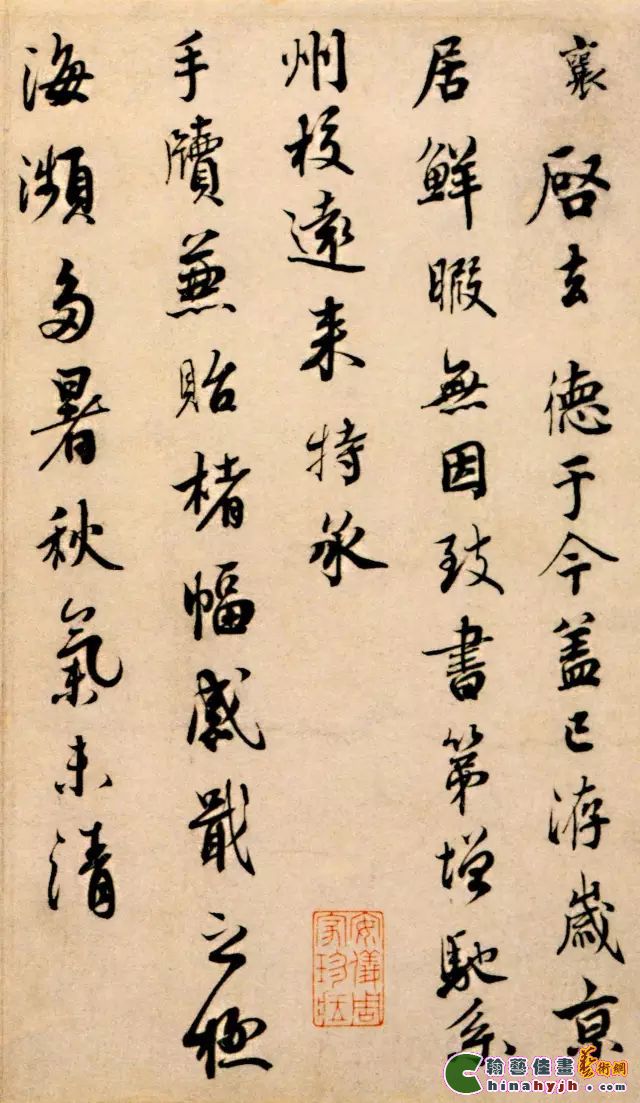 襄啓去德于今盖已洊歲京
居鮮暇無因致書第增馳系
州校遠来特承
手牘兼貽楮幅感戢之極
海瀕多暑秋氣未清
安儀周家珍藏
翰藝佳畫藝術網
Chinahyjh.com